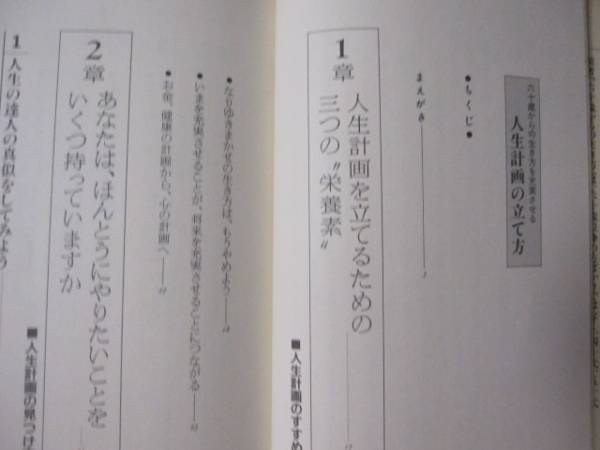 六十歳からの生き方を充実させる
人生計画の立て方
●もくじ●
まえがき
1章 人生計画を立てるための
三つの〝栄養素〟
■人生計画のすすめ
●なりゆきまかせの生き方は、もうやめよう
●いまを充実させることが、将来を充実させることにつながる
●お金、健康の計画から、心の計画へ
2章 あなたは、ほんとうにやりたいことを
いくつ持っていますか
■人生計画の見つけ
1 人生の達人の真似をしてみよう